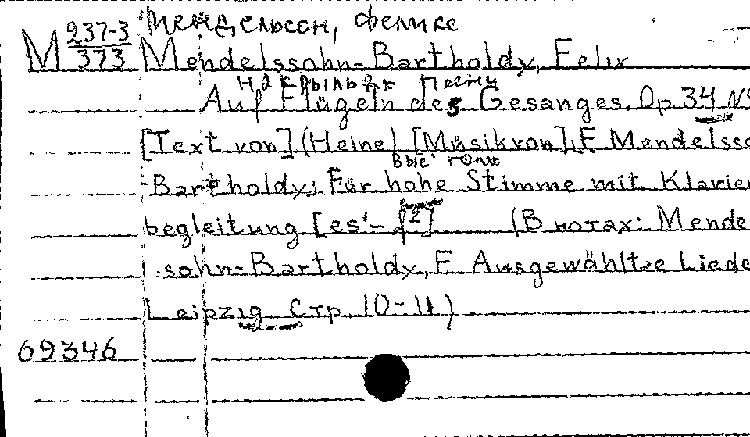 Мендельсон, Феликс
М 237-3/373 Mendelssohn-Bartholdy, Felix
На крыльях Песни
Auf Flügeln des Gesanges. Op. 34 №
[Text von] (Heine) [Musik von] F. Mendelsso
Bartholdy; Für hohe Stimme mit Klavier
begleitung [es'-f2] (В нотах: Mende
sohn-Bartholdy, F. Ausgewählte Liede
Leipzig Стр. 10-11)
69346